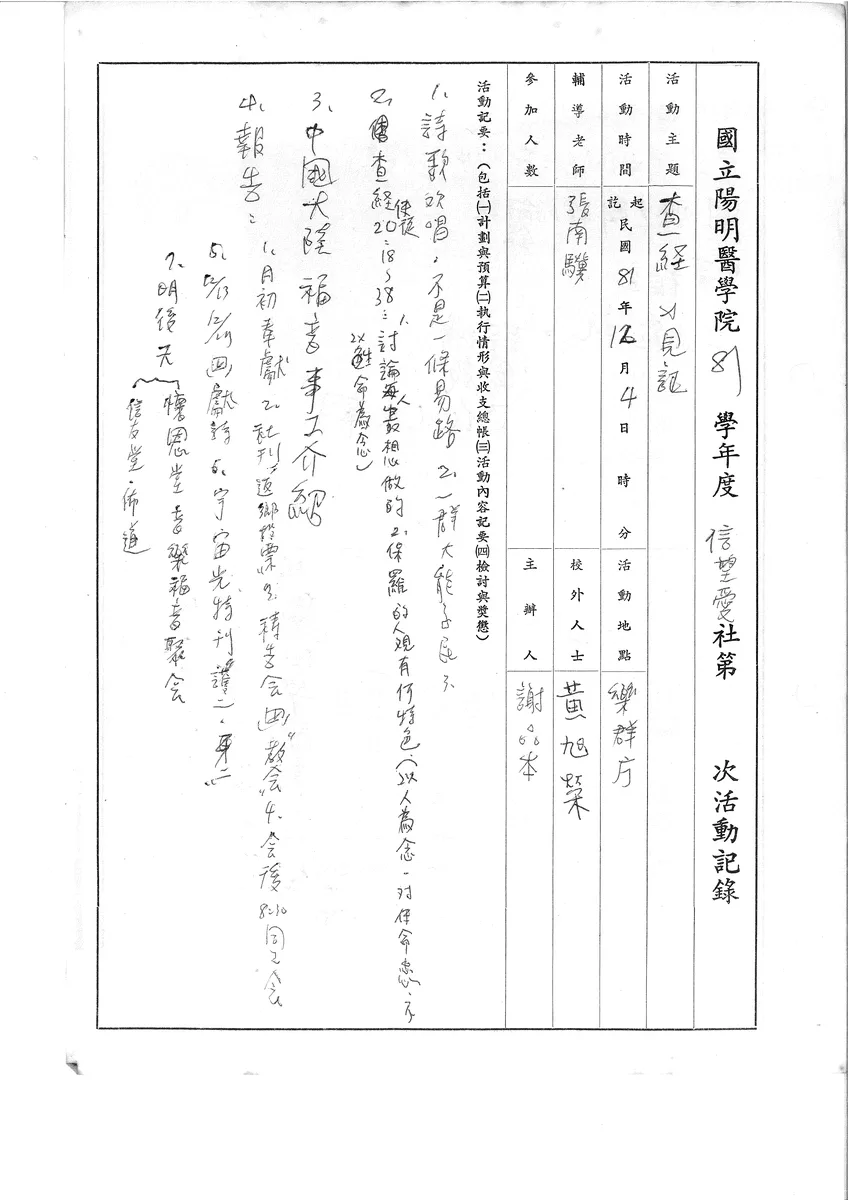 國立陽明醫學院 81 學年度 信望愛社第 次活動記錄
活動主題 查經 見証
活動時間 起訖 民國 81 年 12 月 4 日 時 分 活動地點 樂群廳
輔導老師 張南驥 校外人士 黃旭榮
參加人數 主辦人 謝品本
活動記要:(包括㈠計劃與預算㈡執行情形與收支總帳㈢活動內容記要㈣檢討與獎懲)
1、詩歌欢唱。不是一條易路 2、一群大能子民 3、
2、查經 使徒 20:18~38:1、討論每人最想做的 2、保羅的人观有何特色(以人為念
以 命為念)
3、中國大陸福音事工介紹
4、報告:
1、月初奉獻 2、社刊"返鄉 票" 3、禱告会 "教会" 4、会後 8:30 同工会
5、12/13 12/19 獻詩 6、宇宙光特刊
7、明後天 懷恩堂音樂福音聚会
信友堂·佈道